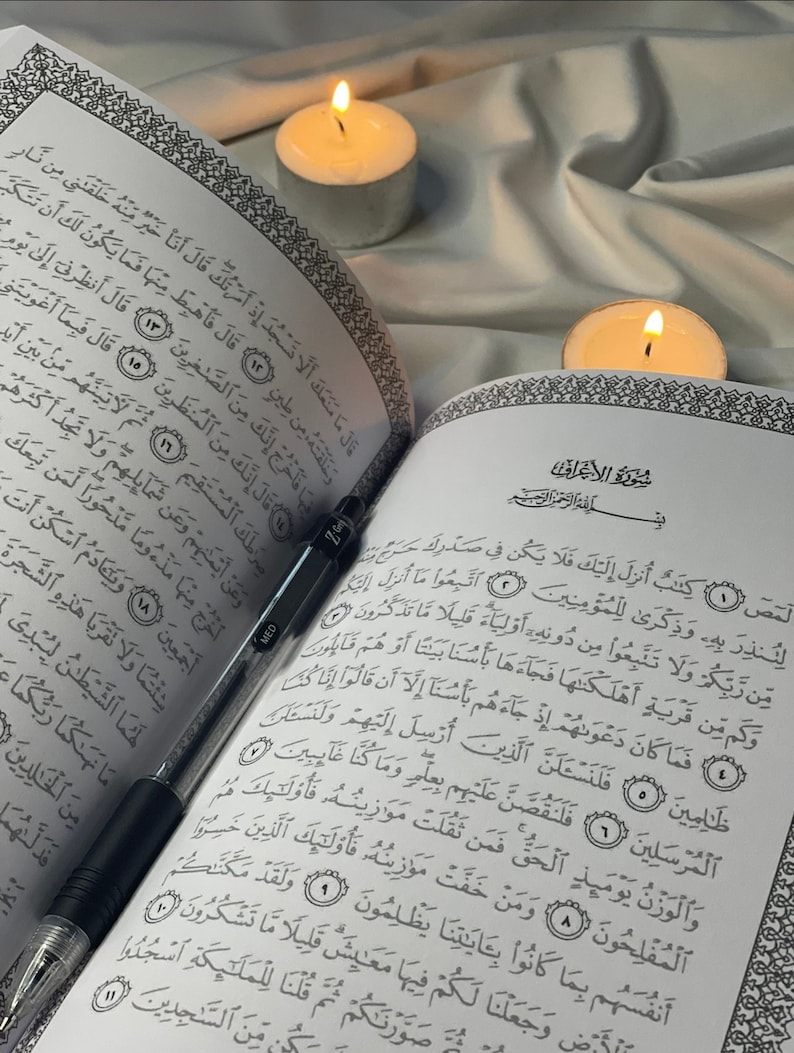 سُورَةُ الأَعْرَافِ
بِسْمِ ٱللَّهِ ٱلرَّحْمَٰنِ ٱلرَّحِيمِ
لٓمٓصٓ ١ كِتَٰبٌ أُنزِلَ إِلَيْكَ فَلَا يَكُن فِى صَدْرِكَ حَرَجٌ مِّنْهُ
لِتُنذِرَ بِهِۦ وَذِكْرَىٰ لِلْمُؤْمِنِينَ ٢ ٱتَّبِعُوا۟ مَآ أُنزِلَ إِلَيْكُم
مِّن رَّبِّكُمْ وَلَا تَتَّبِعُوا۟ مِن دُونِهِۦٓ أَوْلِيَآءَ ۗ قَلِيلًا مَّا تَذَكَّرُونَ ٣
وَكَم مِّن قَرْيَةٍ أَهْلَكْنَٰهَا فَجَآءَهَا بَأْسُنَا بَيَٰتًا أَوْ هُمْ قَآئِلُونَ
٤ فَمَا كَانَ دَعْوَىٰهُمْ إِذْ جَآءَهُم بَأْسُنَآ إِلَّآ أَن قَالُوٓا۟ إِنَّا كُنَّا
ظَٰلِمِينَ ٥ فَلَنَسْـَٔلَنَّ ٱلَّذِينَ أُرْسِلَ إِلَيْهِمْ وَلَنَسْـَٔلَنَّ
ٱلْمُرْسَلِينَ ٦ فَلَنَقُصَّنَّ عَلَيْهِم بِعِلْمٍ ۖ وَمَا كُنَّا غَآئِبِينَ ٧
وَٱلْوَزْنُ يَوْمَئِذٍ ٱلْحَقُّ ۚ فَمَن ثَقُلَتْ مَوَٰزِينُهُۥ فَأُو۟لَٰٓئِكَ هُمُ
ٱلْمُفْلِحُونَ ٨ وَمَنْ خَفَّتْ مَوَٰزِينُهُۥ فَأُو۟لَٰٓئِكَ ٱلَّذِينَ خَسِرُوٓا۟
أَنفُسَهُم بِمَا كَانُوا۟ بِـَٔايَٰتِنَا يَظْلِمُونَ ٩ وَلَقَدْ مَكَّنَّٰكُمْ
ٱلْأَرْضِ وَجَعَلْنَا لَكُمْ فِيهَا مَعَٰيِشَ ۗ قَلِيلًا مَّا تَشْكُرُونَ ١٠
ثُمَّ صَوَّرْنَٰكُمْ ثُمَّ قُلْنَا لِلْمَلَٰٓئِكَةِ ٱسْجُدُوا۟
يَكُن مِّنَ ٱلسَّٰجِدِينَ ١١
قَالَ مَا مَنَعَكَ أَلَّا تَسْجُدَ إِذْ أَمَرْتُكَ ۖ قَالَ أَنَا۠ خَيْرٌ مِّنْهُ خَلَقْتَنِى مِن نَّارٍ
وَخَلَقْتَهُۥ مِن طِينٍ ١٢ قَالَ فَٱهْبِطْ مِنْهَا فَمَا يَكُونُ لَكَ أَن تَتَكَبَّ
فَٱخْرُجْ إِنَّكَ مِنَ ٱلصَّٰغِرِينَ ١٣ قَالَ أَنظِرْنِىٓ إِلَىٰ يَوْمِ
١٤ قَالَ إِنَّكَ مِنَ ٱلْمُنظَرِينَ ١٥ قَالَ فَبِمَآ أَغْوَيْتَنِى
صِرَٰطَكَ ٱلْمُسْتَقِيمَ ١٦ ثُمَّ لَـَٔاتِيَنَّهُم مِّنۢ بَيْنِ أَيْدِ
وَعَنْ أَيْمَٰنِهِمْ وَعَن شَمَآئِلِهِمْ ۖ وَلَا تَجِدُ أَكْثَرَهُمْ
ٱخْرُجْ مِنْهَا مَذْءُومًا مَّدْحُورًا ۖ لَّمَن تَبِعَكَ
أَجْمَعِينَ ١٨ وَيَٰٓـَٔادَمُ ٱسْكُنْ أَنتَ
شِئْتُمَا وَلَا تَقْرَبَا هَٰذِهِ ٱلشَّجَرَةَ
لَهُمَا ٱلشَّيْطَٰنُ لِيُبْدِىَ
مَا نَهَىٰكُمَا رَبُّكُمَا عَنْ
مِنَ ٱلْخَٰلِدِينَ
فَدَلَّىٰهُمَا
MED